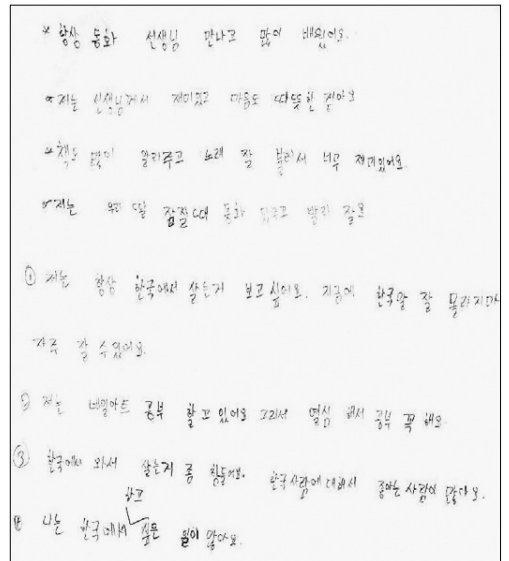 * 항상 동화 선생님 만나고 많이 배웠어요.
* 저는 선생님께서 재미있고 마음도 따뜻한 같아요
* 책도 많이 알리주고 노래 잘 불러서 너무 재미있어요.
* 저는 우리 딸 잠잘때 동화 읽구고 빨리 잘요
① 저는 항상 한국에서 살는거 보고 싶어요. 지금에 한국말 잘 몰라지만
자주 잘 수있어요.
② 저는 네일아트 공부 할고 있어요 그리서 열심 해서 공부 꼭 해요.
③ 한국에서 와서 살는거 좀 힘들어요. 한국사람에 대해서 좋아는 사람이 많아요.
하고
④ 나는 한국에서 싶은 일이 많아요.